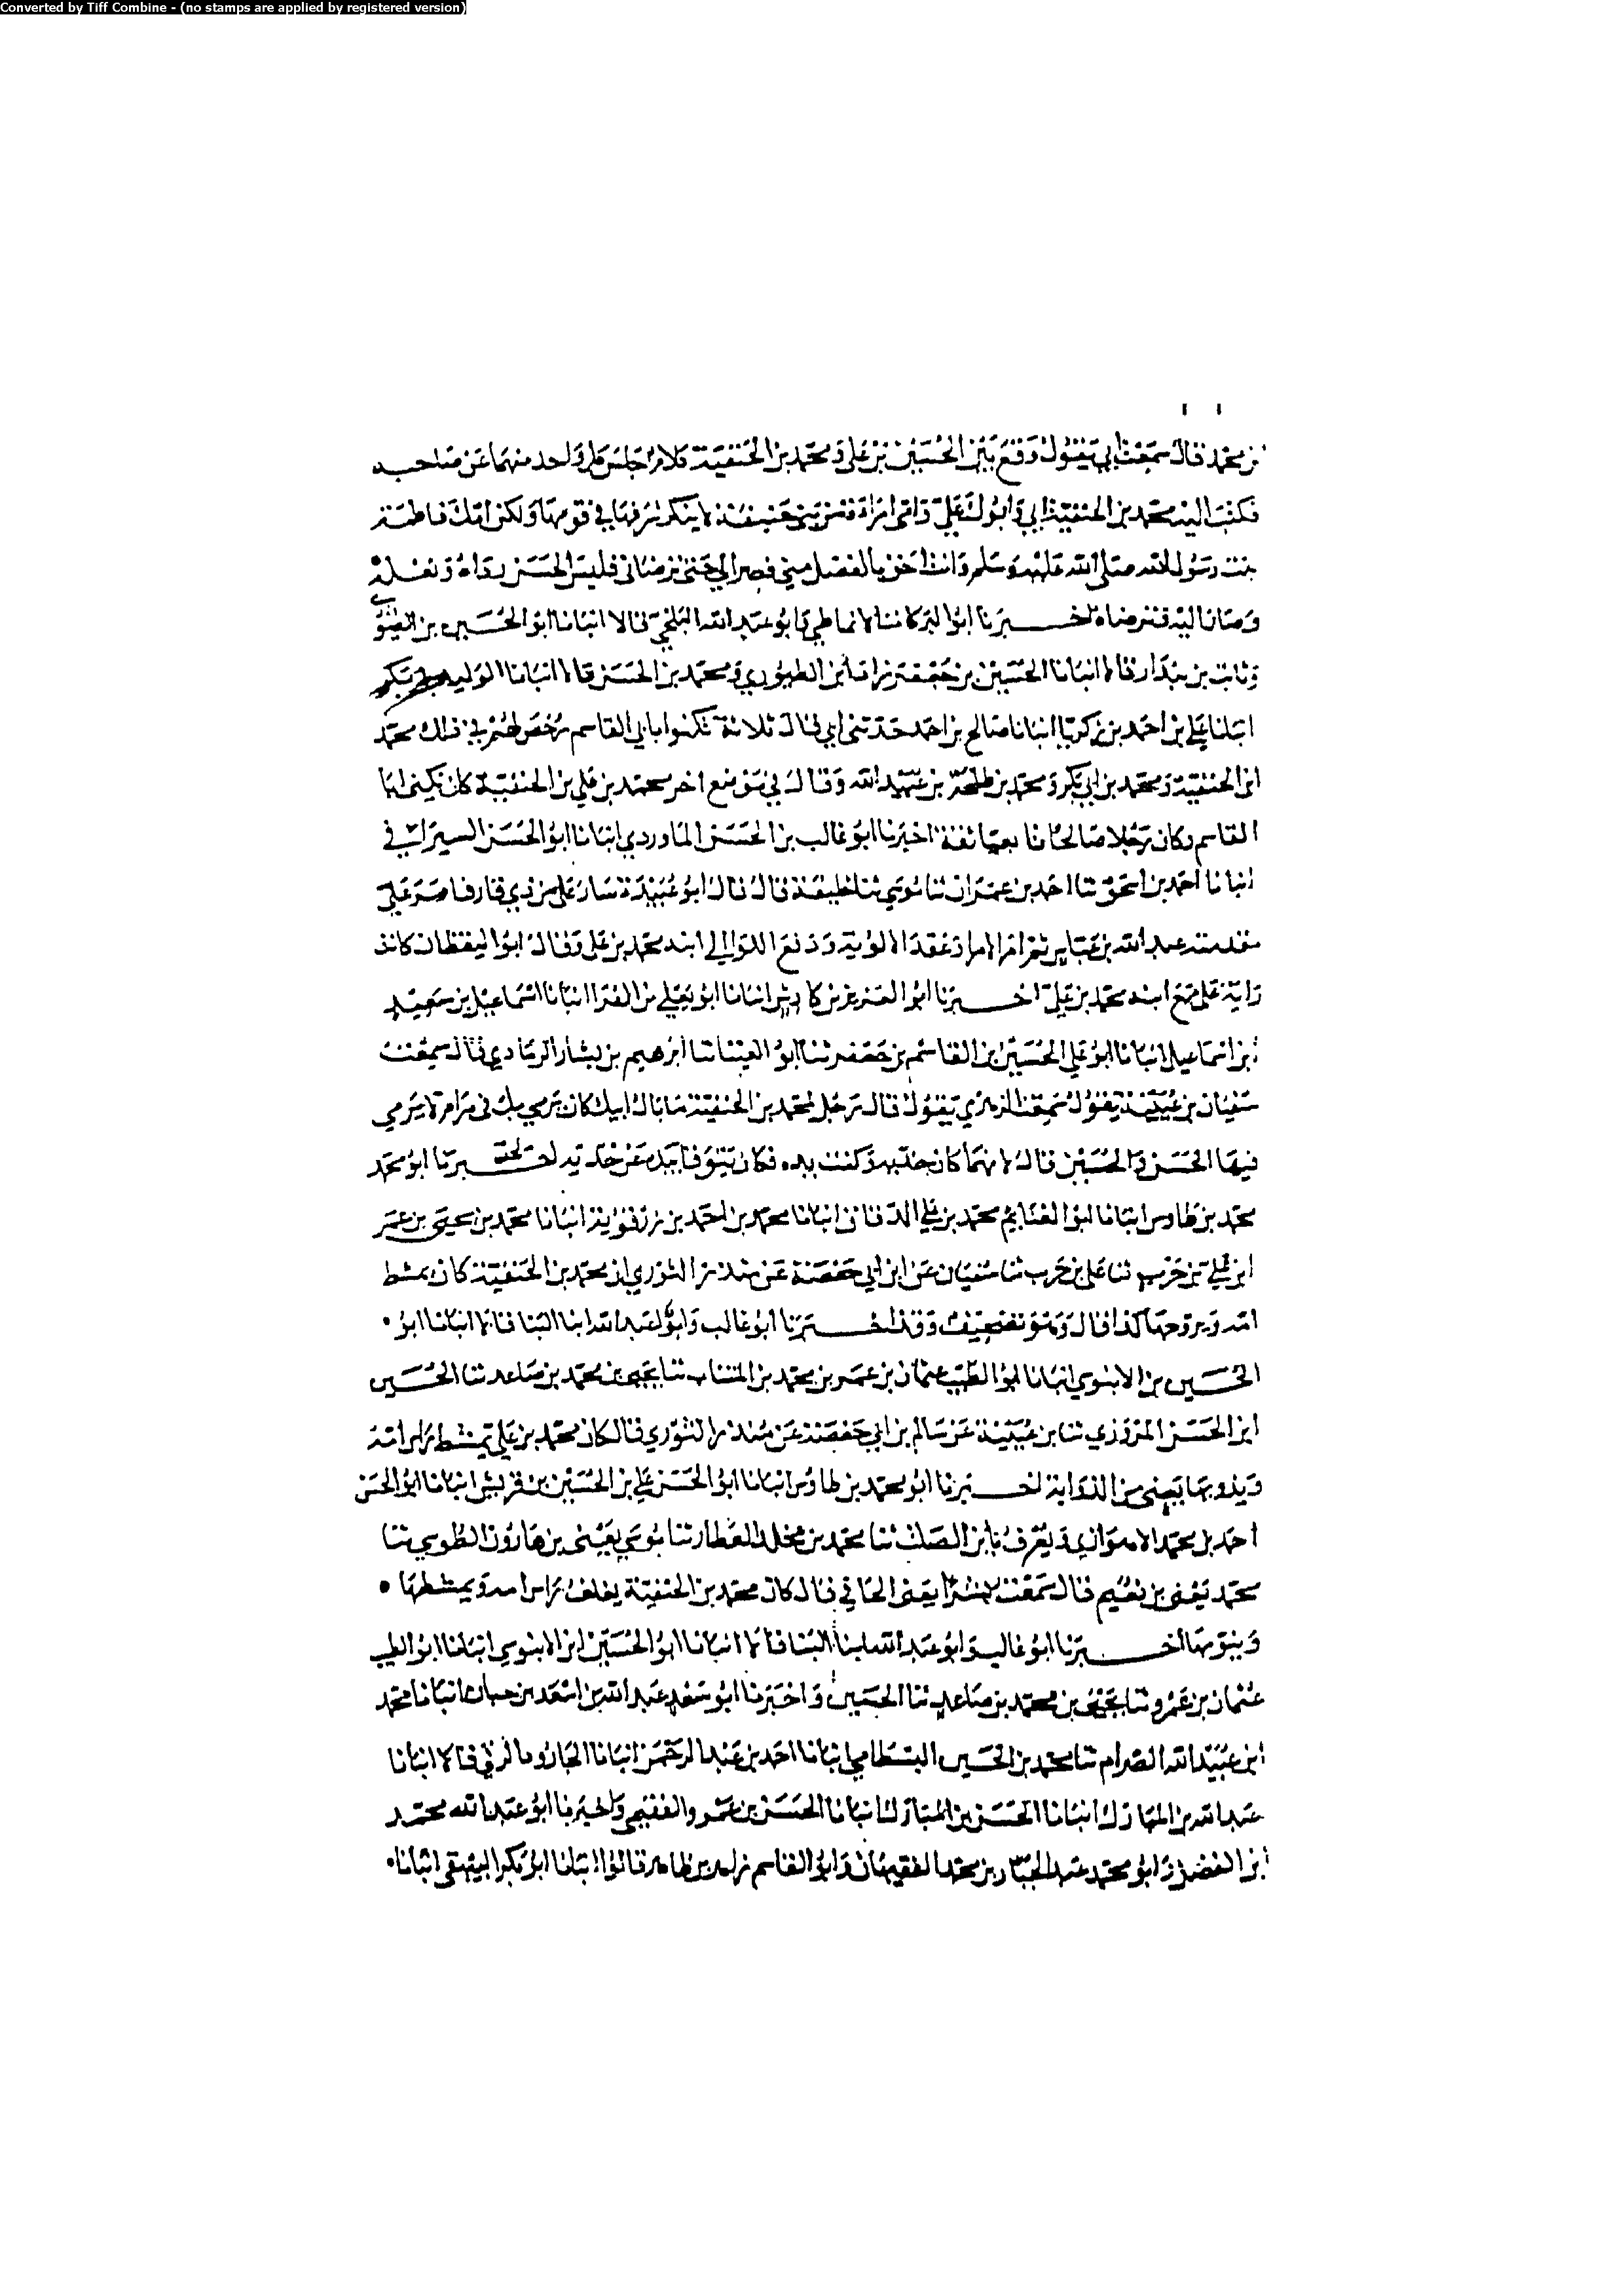 Converted by Tiff Combine - (no stamps are applied by registered version)
بن محمد قال سمعت ابي يقول وقع بين الحسين بن علي ومحمد بن الحنفية كلام جلس كل واحد منهما عن صاحبه
فكتب اليه محمد بن الحنفية ابي وابوك علي وامي امراة من بني حنيفة لا ينكر شرفها في قومها ولكن امك فاطمة
بنت رسول الله صلى الله عليه وسلم وانت احق بالفضل مني فصر الي حتى ترضاني فلبس الحسن رداه ونعله
وصار اليه فترضاه اخبرنا ابو البركات الانماطي وابو عبد الله البلخي قالا انبانا ابو الحسين بن الطيوري
وثابت بن بندار قالا انبانا الحسين بن جعفر زاد ابن الطيوري ومحمد بن الحسن قالا انبانا الوليد بن بكر
انبانا علي بن احمد بن زكريا انبانا صالح بن احمد حدثني ابي قال ثلاثة تكنوا بابي القاسم رخص لهم في ذلك محمد
ابن الحنفية ومحمد بن ابي بكر ومحمد بن طلحة بن عبيد الله وقال في موضع اخر محمد بن علي بن الحنفية كان يكنى ابا
القاسم وكان رجلا صالحا تابعيا ثقة اخبرنا ابو غالب بن الحسن الماوردي انبانا ابو الحسن السيرافي
انبانا احمد بن اسحق ثنا احمد بن عمران ثنا موسى ثنا خليفة قال قال ابو عبيدة سار علي من ذي قار فامر علي
مقدمته عبد الله بن عباس ثم امر الامرا وعقد الالوية ودفع اللوا الى ابنه محمد بن علي وقال ابو اليقظان كانت
راية علي مع ابنه محمد بن علي اخبرنا ابو العز بن كادش انبانا ابو يعلى بن الفرا انبانا اسماعيل بن سعيد
ابن اسماعيل انبانا ابو علي الحسين بن القاسم بن جعفر ثنا ابو العينا ثنا ابرهيم بن بشار الرمادي قال سمعت
سفيان بن عيينة يقول سمعت الزهري يقول قال رجل لمحمد بن الحنفية ما بال ابيك كان يرمي بك في مرام لا يرمي
فيها الحسن والحسين قال لانهما كانا خديه وكنت يده فكان يتوقا بيده عن خديه اخبرنا ابو محمد
محمد بن طاوس انبانا ابو الغنايم محمد بن علي الدقاق انبانا محمد بن احمد بن رزقويه انبانا محمد بن يحيى بن عمر
ابن علي بن حرب ثنا علي بن حرب ثنا سفيان عن ابن ابي حفصة عن منذر الثوري ان محمد بن الحنفية كان يمشط
امه ويروحها كذا قال وهو تصحيف وقد اخبرنا ابو غالب وابو عبد الله ابنا البنا قالا انبانا ابو
الحسين بن الابنوسي انبانا ابو الطيب عثمان بن عمر بن محمد بن المنتاب ثنا يحيى بن محمد بن صاعد ثنا الحسين
ابن الحسن المروزي ثنا بن عيينة عن سالم بن ابي حفصة عن منذر الثوري قال كان محمد بن علي يمشط راس امه
ويذوبها يعني من الذوابة اخبرنا ابو محمد بن طاوس انبانا ابو الحسن علي بن الحسين بن قريش انبانا ابو الحسن
احمد بن محمد الاهوازي ويعرف بابن الصلت ثنا محمد بن مخلد العطار ثنا موسى يعني بن هارون الطوسي ثنا
محمد يعني بن نعيم قال سمعت بشرا يعني الحافي قال كان محمد بن الحنفية يغلف راس امه ويمشطها
اخبرنا ابو غالب وابو عبد الله ابنا البنا قالا انبانا ابو الحسين ابن الابنوسي انبانا ابو الطيب
عثمان بن عمرو ثنا يحيى بن محمد بن صاعد ثنا الحسين واخبرنا ابو سعد عبد الله بن اسعد بن حيان انبانا محمد
ابن عبيد الله الصرام ثنا محمد بن الحسين البسطامي انبانا احمد بن عبد الرحمن انبانا قالا انبانا
عبد الله بن المبارك انبانا الحسن بن عمرو الفقيمي واخبرنا ابو عبد الله محمد
ابن الفضل وابو محمد عبد الجبار بن محمد الفقيهان وابو القاسم زاهر بن طاهر قالوا انبانا ابو بكر البيهقي انبانا